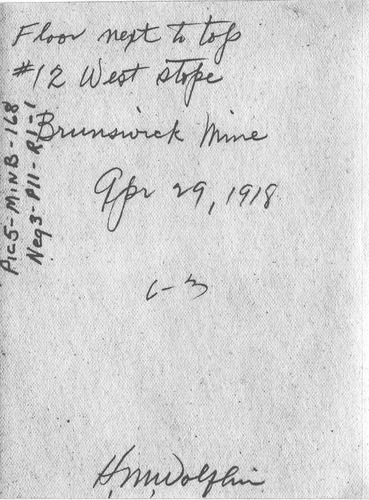 Floor next to top
#12 West stope
Brunswick Mine
Apr 29, 1918
C-3
H. M. Wolflin
Pic5-MINB-168
Neg3-P11-R1-1